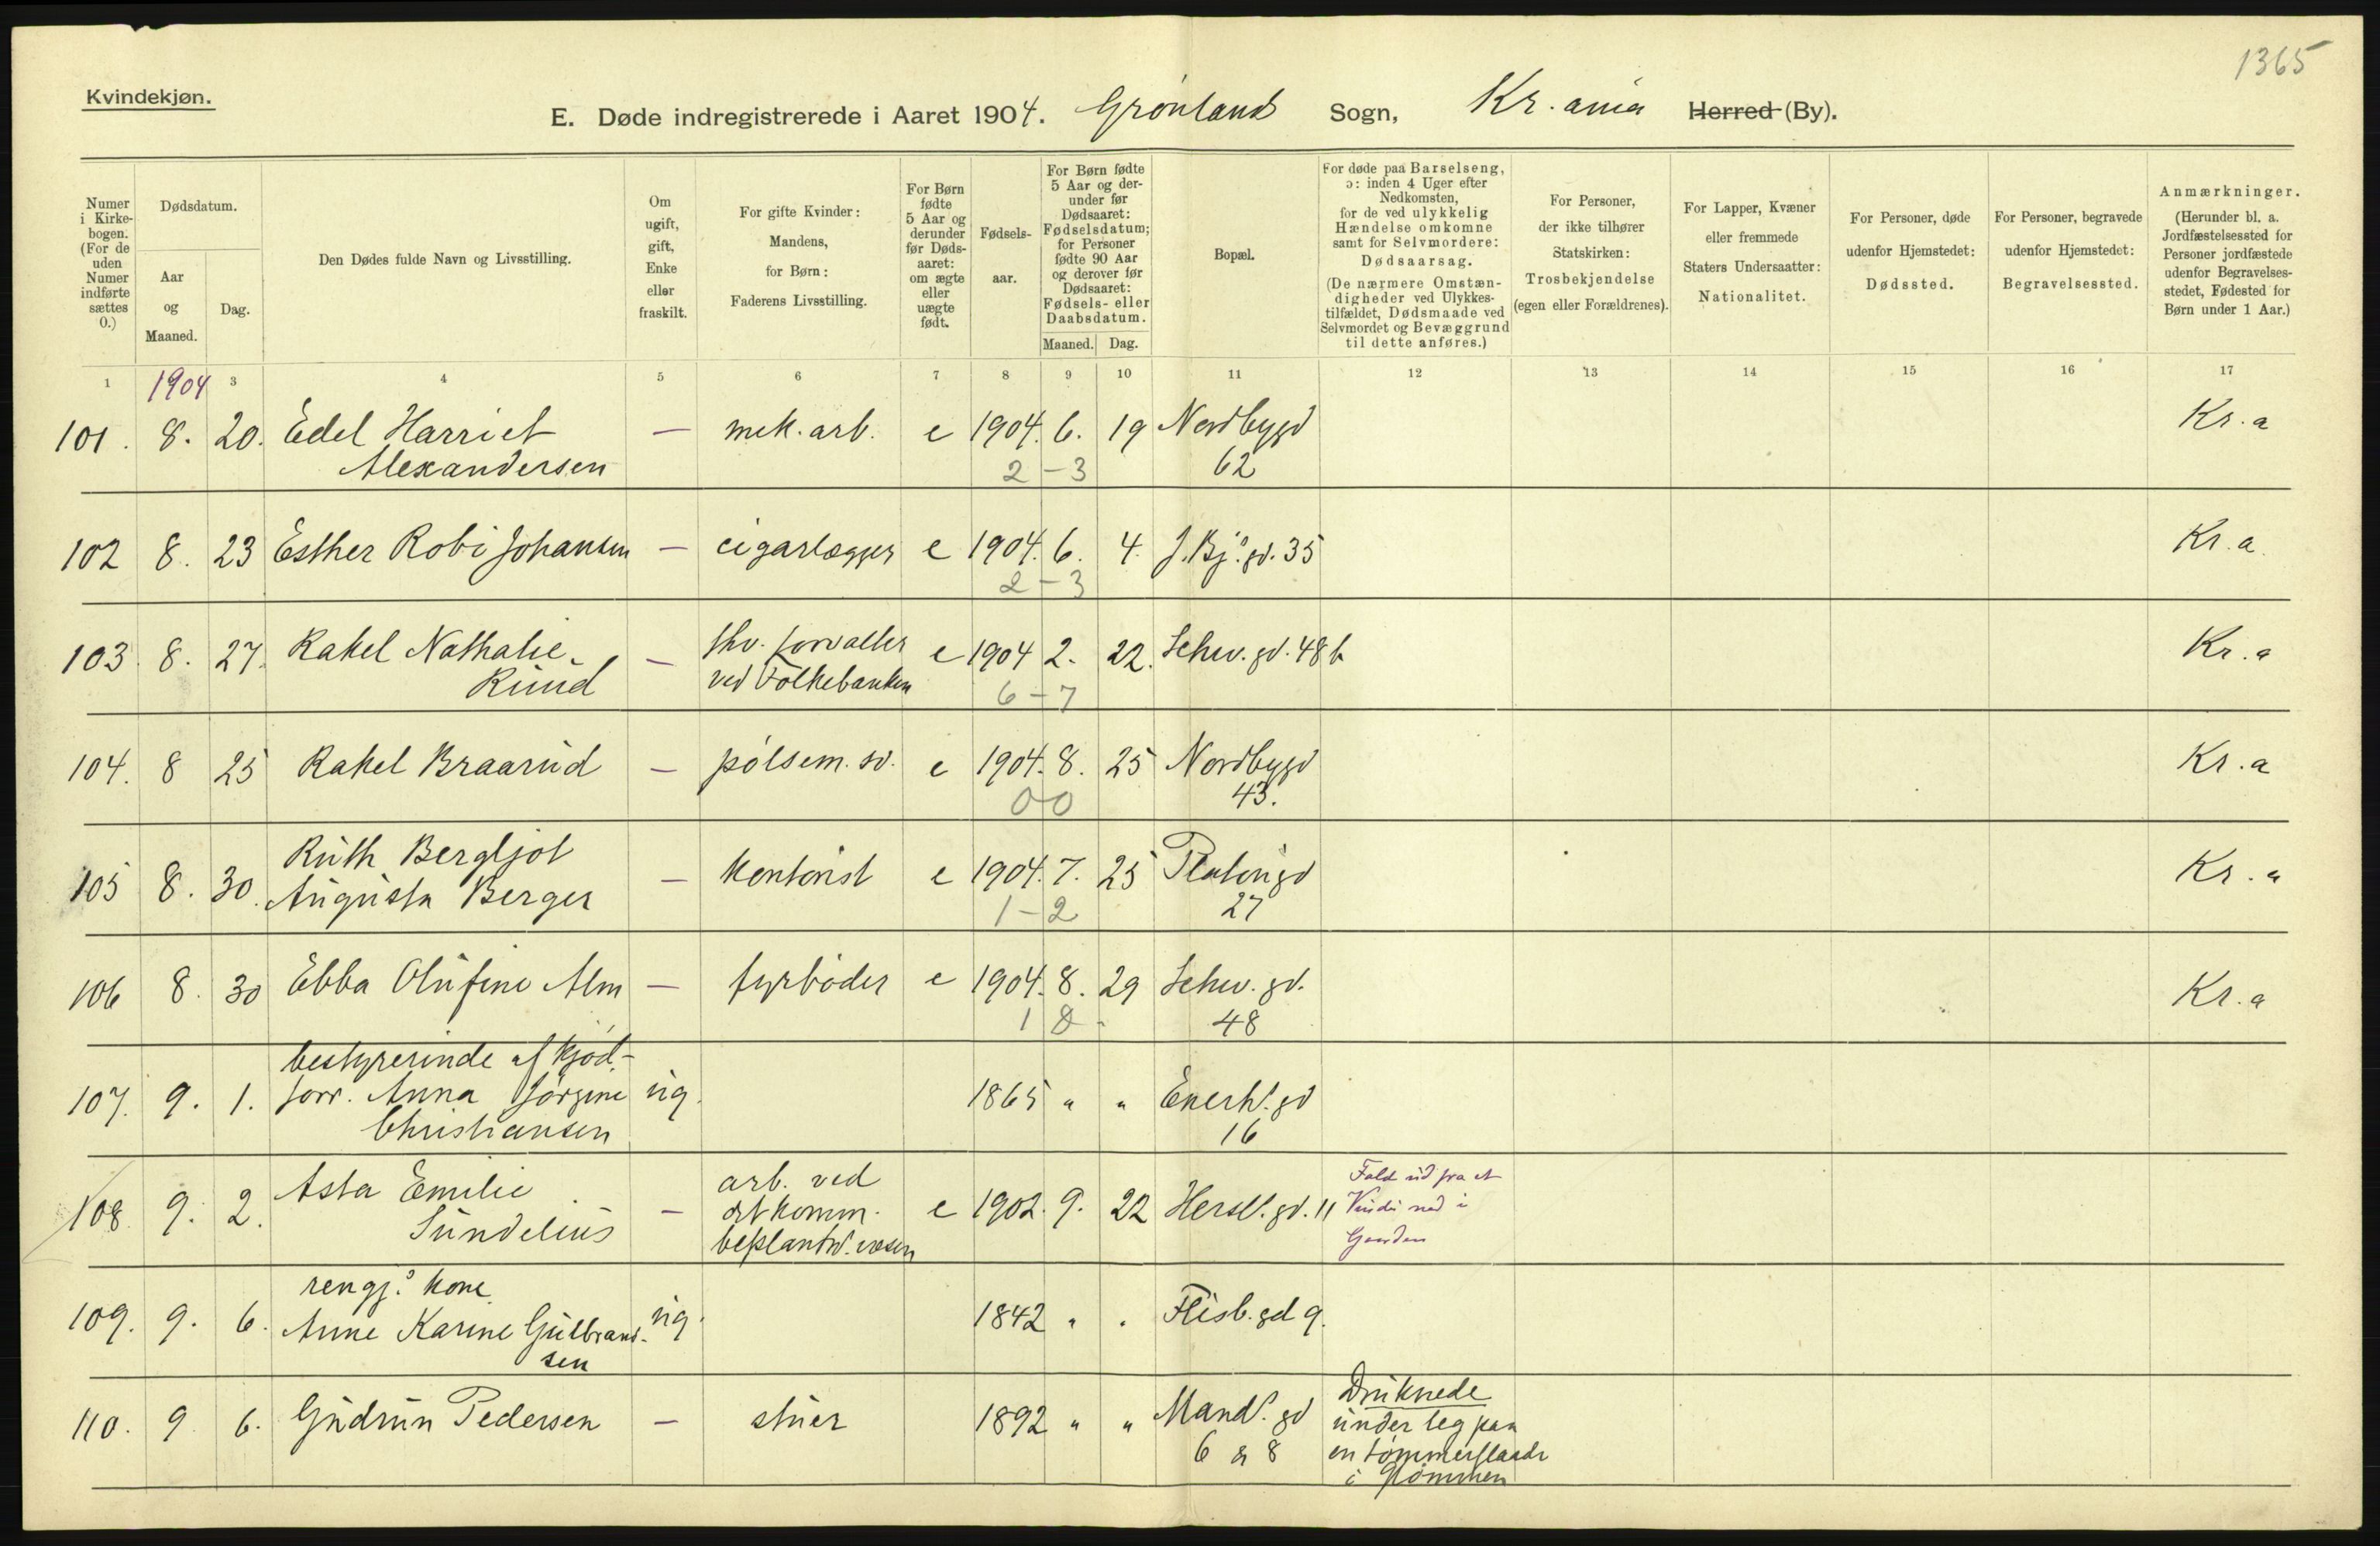 1365
Kvindekjøn.
E. Døde indregistrerede i Aaret 1904. Grønland Sogn, Kr.ania Herred (By).
Numer i Kirke-bogen. (For de uden Numer indførte sættes 0.)
Dødsdatum.
Aar og Maaned.
Dag.
Den Dødes fulde Navn og Livsstilling.
Om ugift, gift, Enke eller fraskilt.
For gifte Kvinder: Mandens, for Børn: Faderens Livsstilling.
For Børn fødte 5 Aar og derunder før Døds-aaret: om ægte eller uægte født.
Fødsels-aar.
For Børn fødte 5 Aar og der-under før Dødsaaret: Fødselsdatum; for Personer fødte 90 Aar og derover før Dødsaaret: Fødsels- eller Daabsdatum.
Maaned. Dag.
Bopæl.
For døde paa Barselseng, ɔ: inden 4 Uger efter Nedkomsten, for de ved ulykkelig Hændelse omkomne samt for Selvmordere: Dødsaarsag. (De nærmere Omstæn-digheder ved Ulykkes-tilfældet, Dødsmaade ved Selvmordet og Bevæggrund til dette anføres.)
For Personer, der ikke tilhører Statskirken: Trosbekjendelse (egen eller Forældrenes).
For Lapper, Kvæner eller fremmede Staters Undersaatter: Nationalitet.
For Personer, døde udenfor Hjemstedet: Dødssted.
For Personer, begravede udenfor Hjemstedet: Begravelsessted.
Anmærkninger. (Herunder bl. a. Jordfæstelsessted for Personer jordfæstede udenfor Begravelses-stedet, Fødested for Børn under 1 Aar.)
1 1904 3 4 5 6 7 8 9 10 11 12 13 14 15 16 17
101. 8. 20. Edel Harriet — mek. arb. e 1904. 6. 19 Nordbygd Kr.a
Alexandersen 2-3 62
102 8. 23 Esther Robi Johansen — cigarlægger e 1904. 6. 4. J. Bj. gd. 35 Kr.a.
2-3
103. 8. 27. Rakel Nathalie — fhv. forvalter e 1904 2. 22. Schw. gd. 48 b Kr.a
Rund ved Folkebanken 6-7
104. 8 25 Rakel Braarud — pølsem. sv. e 1904. 8. 25 Nordbygd Kr.a
00 43.
Ruth Bergljot
105 8. 30. Augusta Berger — kontorist e 1904. 7. 25 Platougd Kr.a
1-2 27
106 8. 30 Ebba Olufine Alm — fyrbøder e 1904. 8. 29 Schw. gd. Kr.a
1 48
bestyrerinde af kjød-
107. 9. 1. forr. Anna Jørgine ug. 1865 " " Enerh. gd
Christiansen 16
108. 9. 2. Asta Emilie — arb. ved e 1902. 9. 22 Hersl. gd. 11 Fald ud fra et
Sundelius det komm. Vindu ned i
beplantn. væsen Gaarden
rengj. kone
109. 9. 6. Anne Karine Gulbrand- ug. 1842 " " Flisb. gd 9.
sen
110. 9 6. Gudrun Pedersen — stuer 1892 " " Mand. gd Druknede
6 & 8 under leg paa
en tømmerflaade
i Glommen